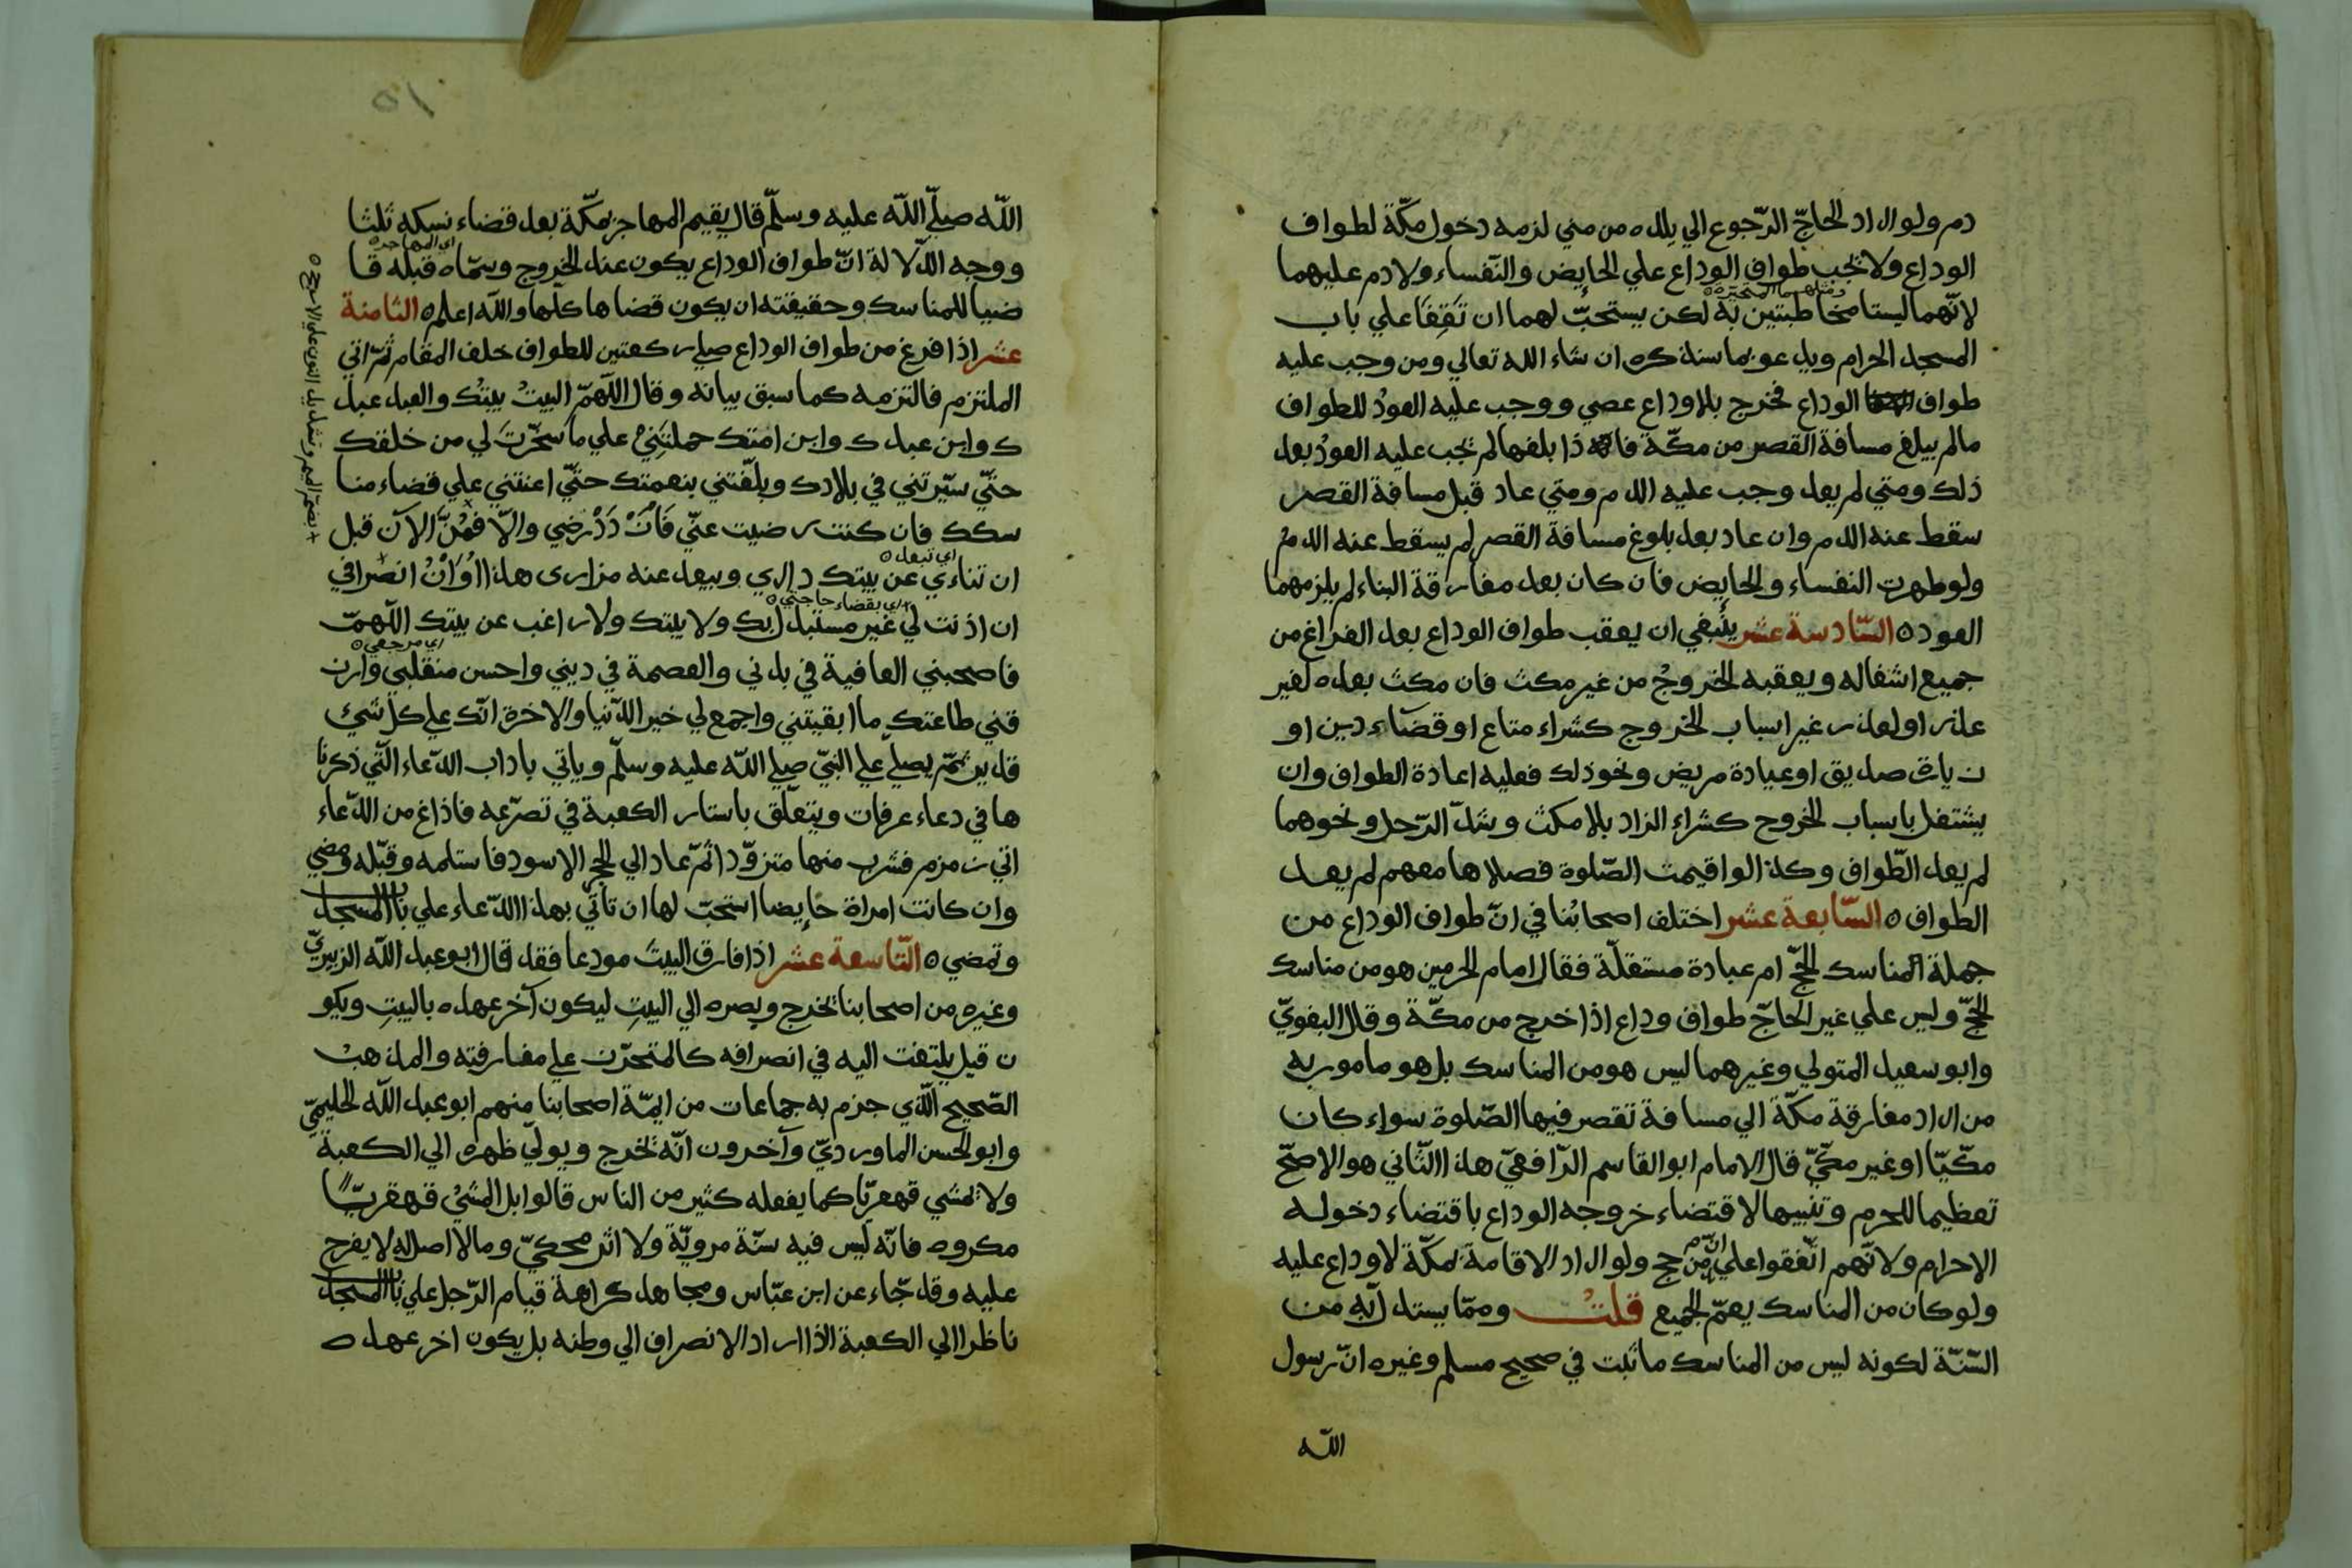 دم ولو اراد الحاجّ الرّجوع الي بلده من مني لزمه دخول مكّة لطواف
الوداع ولا تجب طواف الوداع علي الحايض والنّفساء ولا دم عليهما
ومثلهما المتحيرة
لانّهما ليستا مخاطبتين به لكن يستحبّ لهما ان تَقِفَا علي باب
المسجد الحرام ويدعو بما سنذكره ان شاء الله تعالي ومن وجب عليه
طواف الوداع فخرج بلا وداع عصي ووجب عليه العودُ للطواف
مالم يبلغ مسافة القصر من مكّة فاذا بلغها لم تجب عليه العودُ بعد
ذلك ومتي لم يعد وجب عليه الدم ومتي عاد قبل مسافة القصر
سقط عنه الدم وان عاد بعد بلوغ مسافة القصر لم يسقط عنه الدمُ
ولو طهرت النفساء والحايض فان كان بعد مفارقة البناء لم يلزمهما
العود ٥ السّادسة عشر ينبغي ان يعقب طواف الوداع بعد الفراغ من
جميع اشغاله ويعقبه الخروجُ من غير مكث فان مكث بعده لغير
عذر او لعذر غير اسباب الخروج كشراء متاع او قضاء دين او
زيارة صديق او عيادة مريض ونحو ذلك فعليه اعادة الطواف وان
يشتغل باسباب الخروج كشراء الزاد بلا مكث وشدّ الرّحل ونحوهما
لم يعد الطّواف وكذا لو اقيمت الصّلوة فصلاها معهم لم يعد
الطواف ٥ السّابعة عشر اختلف اصحابُنا في انّ طواف الوداع من
جملة المناسك الحجّ ام عبادة مستقلّة فقال امام الحرمين هو من مناسك
الحجّ وليس علي غير الحاجّ طواف وداع اذا خرج من مكّة وقال البغويّ
وابو سعيد المتولي وغيرهما ليس هو من المناسك بل هو مامور به
من اراد مفارقة مكّة الي مسافة تقصر فيها الصّلوة سواء كان
مكّيّا او غير مكّيّ قال الامام ابو القاسم الرّافعيّ هذا الثّاني هو الاصحّ
تعظيما للحرم وتشبيها لاقتضاء خروجه الوداع باقتضاء دخوله
الاحرام ولانّهم اتّفقوا علي انّ من حج ولو اراد الاقامة بمكّة لا وداع عليه
ولو كان من المناسك يعمّ الجميع قلتُ وممّا يستدلّ به من
السّنّة لكونه ليس من المناسك ما ثبت في صحيح مسلم وغيره انّ رسول
الله
١٥
اللّه صلّي اللّه عليه وسلّم قال يقيم المهاجر بمكّة بعد قضاء نسكه ثلثا
اي المهاجر ٥
ووجه الدّلالة انّ طواف الوداع يكون عند الخروج وسمّاه قبله قا
ضيا للمناسك وحقيقته ان يكون قضاها كلّها والله اعلم ٥ الثّامنة
عشر اذا فرغ من طواف الوداع صلي ركعتين للطواف خلف المقام ثمّ اتي
الملتزم فالتزمه كما سبق بيانه وقال اللّهمّ البيتُ بيتك والعبد عبد
ك وابن عبدك وابن امتك حملتني علي ما سخّرتَ لي من خلقك
حتّي سيّرتني في بلادك وبلّغتني بنعمتك حتّي اعنتني علي قضاء منا
سكك فان كنت رضيت عنّي فَازْدَدْ رضي والّا فمُنَّ الآن قبل
اي تبعد ٥
ان تناءي عن بيتك داري ويبعد عنه مزاري هذا اوَانُ انصرافي
اي بقضاء حاجتي ٥
ان اذنت لي غير مستبدل بك ولا بيتك ولا راغب عن بيتك اللّهمّ
اي مرجعي ٥
فاصحبني العافية في بدني والعصمة في ديني واحسن منقلبي وارز
قني طاعتك ما ابقيتني واجمع لي خير الدّنيا والاخرة انّك علي كل شئ
قدير ثمّ يصلّي علي النبّي صلي اللّه عليه وسلّم وياتي باداب الدّعاء الّتي ذكرنا
ها في دعاء عرفات ويتعلّق باستار الكعبة في تضرّعه فاذا غ من الدّعاء
اتي زمزم فشرب منها متزوّدا ثمّ عاد الي الحجر الاسود فاستلمه وقبّله ومضي
وان كانت امراة حايضا استحبّ لها ان تاتي بهذا الدّعاء علي باب المسجد
وتمضي ٥ التّاسعة عشر اذا فارق البيتَ مودعا فقد قال ابو عبد اللّه الزبيريّ
وغيره من اصحابنا تخرج وبصره الي البيتِ ليكون آخر عهده بالبيتِ ويكو
ن قيل يلتفت اليه في انصرافه كالمتحزّن علي مفارقته والمذهبُ
الصّحيح الّذي جزم به جماعات من ايمّة اصحابنا منهم ابو عبد اللّه الحليميّ
وابو الحسن الماورديّ وآخرون انّه تخرج ويولّي ظهره الي الكعبة
ولا تمشي قهقريّا كما يفعله كثير من الناس قالوا بل المشيُ قهقريّا
مكروه فانّه ليس فيه سنّة مرويّة ولا اثر محكيّ وما لا اصل له لا يفرج
عليه وقد جّاء عن ابن عبّاس ومجاهد كراهة قيام الرّجل علي باب المسجد
ناظرا الي الكعبة اذا اراد الانصراف الي وطنه بل يكون اخر عهده
+ بضمّ الميم وتشديد النون علي الارجح ٥